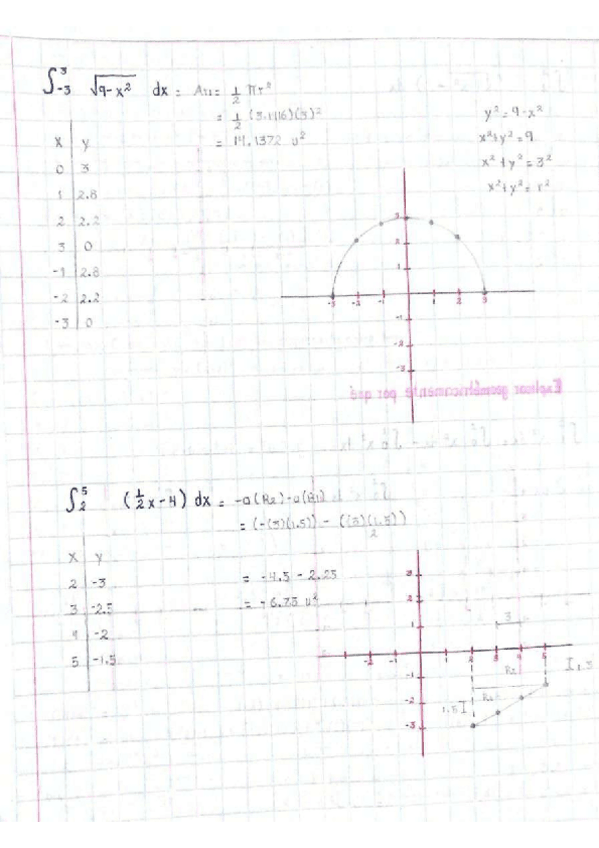 ∫₋₃³ √9-x² dx = Au = 1/2 πr²
= 1/2 (3.1416)(3)²
= 14.1372 u²
y² = 9-x²
x²+y² = 9
x²+y² = 3²
x²+y² = r²
x y
0 3
1 2.8
2 2.2
3 0
-1 2.8
-2 2.2
-3 0
3
2
1
-3 -2 -1 1 2 3
-1
-2
-3
Explicar geométricamente por qué
∫₂⁵ (1/2x-4) dx = -a(R2)-a(R1)
= (-(3)(1.5)) - ((3)(1.5)/2)
= -4.5 - 2.25
= -6.75 u²
x y
2 -3
3 -2.5
4 -2
5 -1.5
3
2
1
3
-2 -1 2 3 4 5
R2
I 1.5
-1
R1
1.5 I
-2
-3